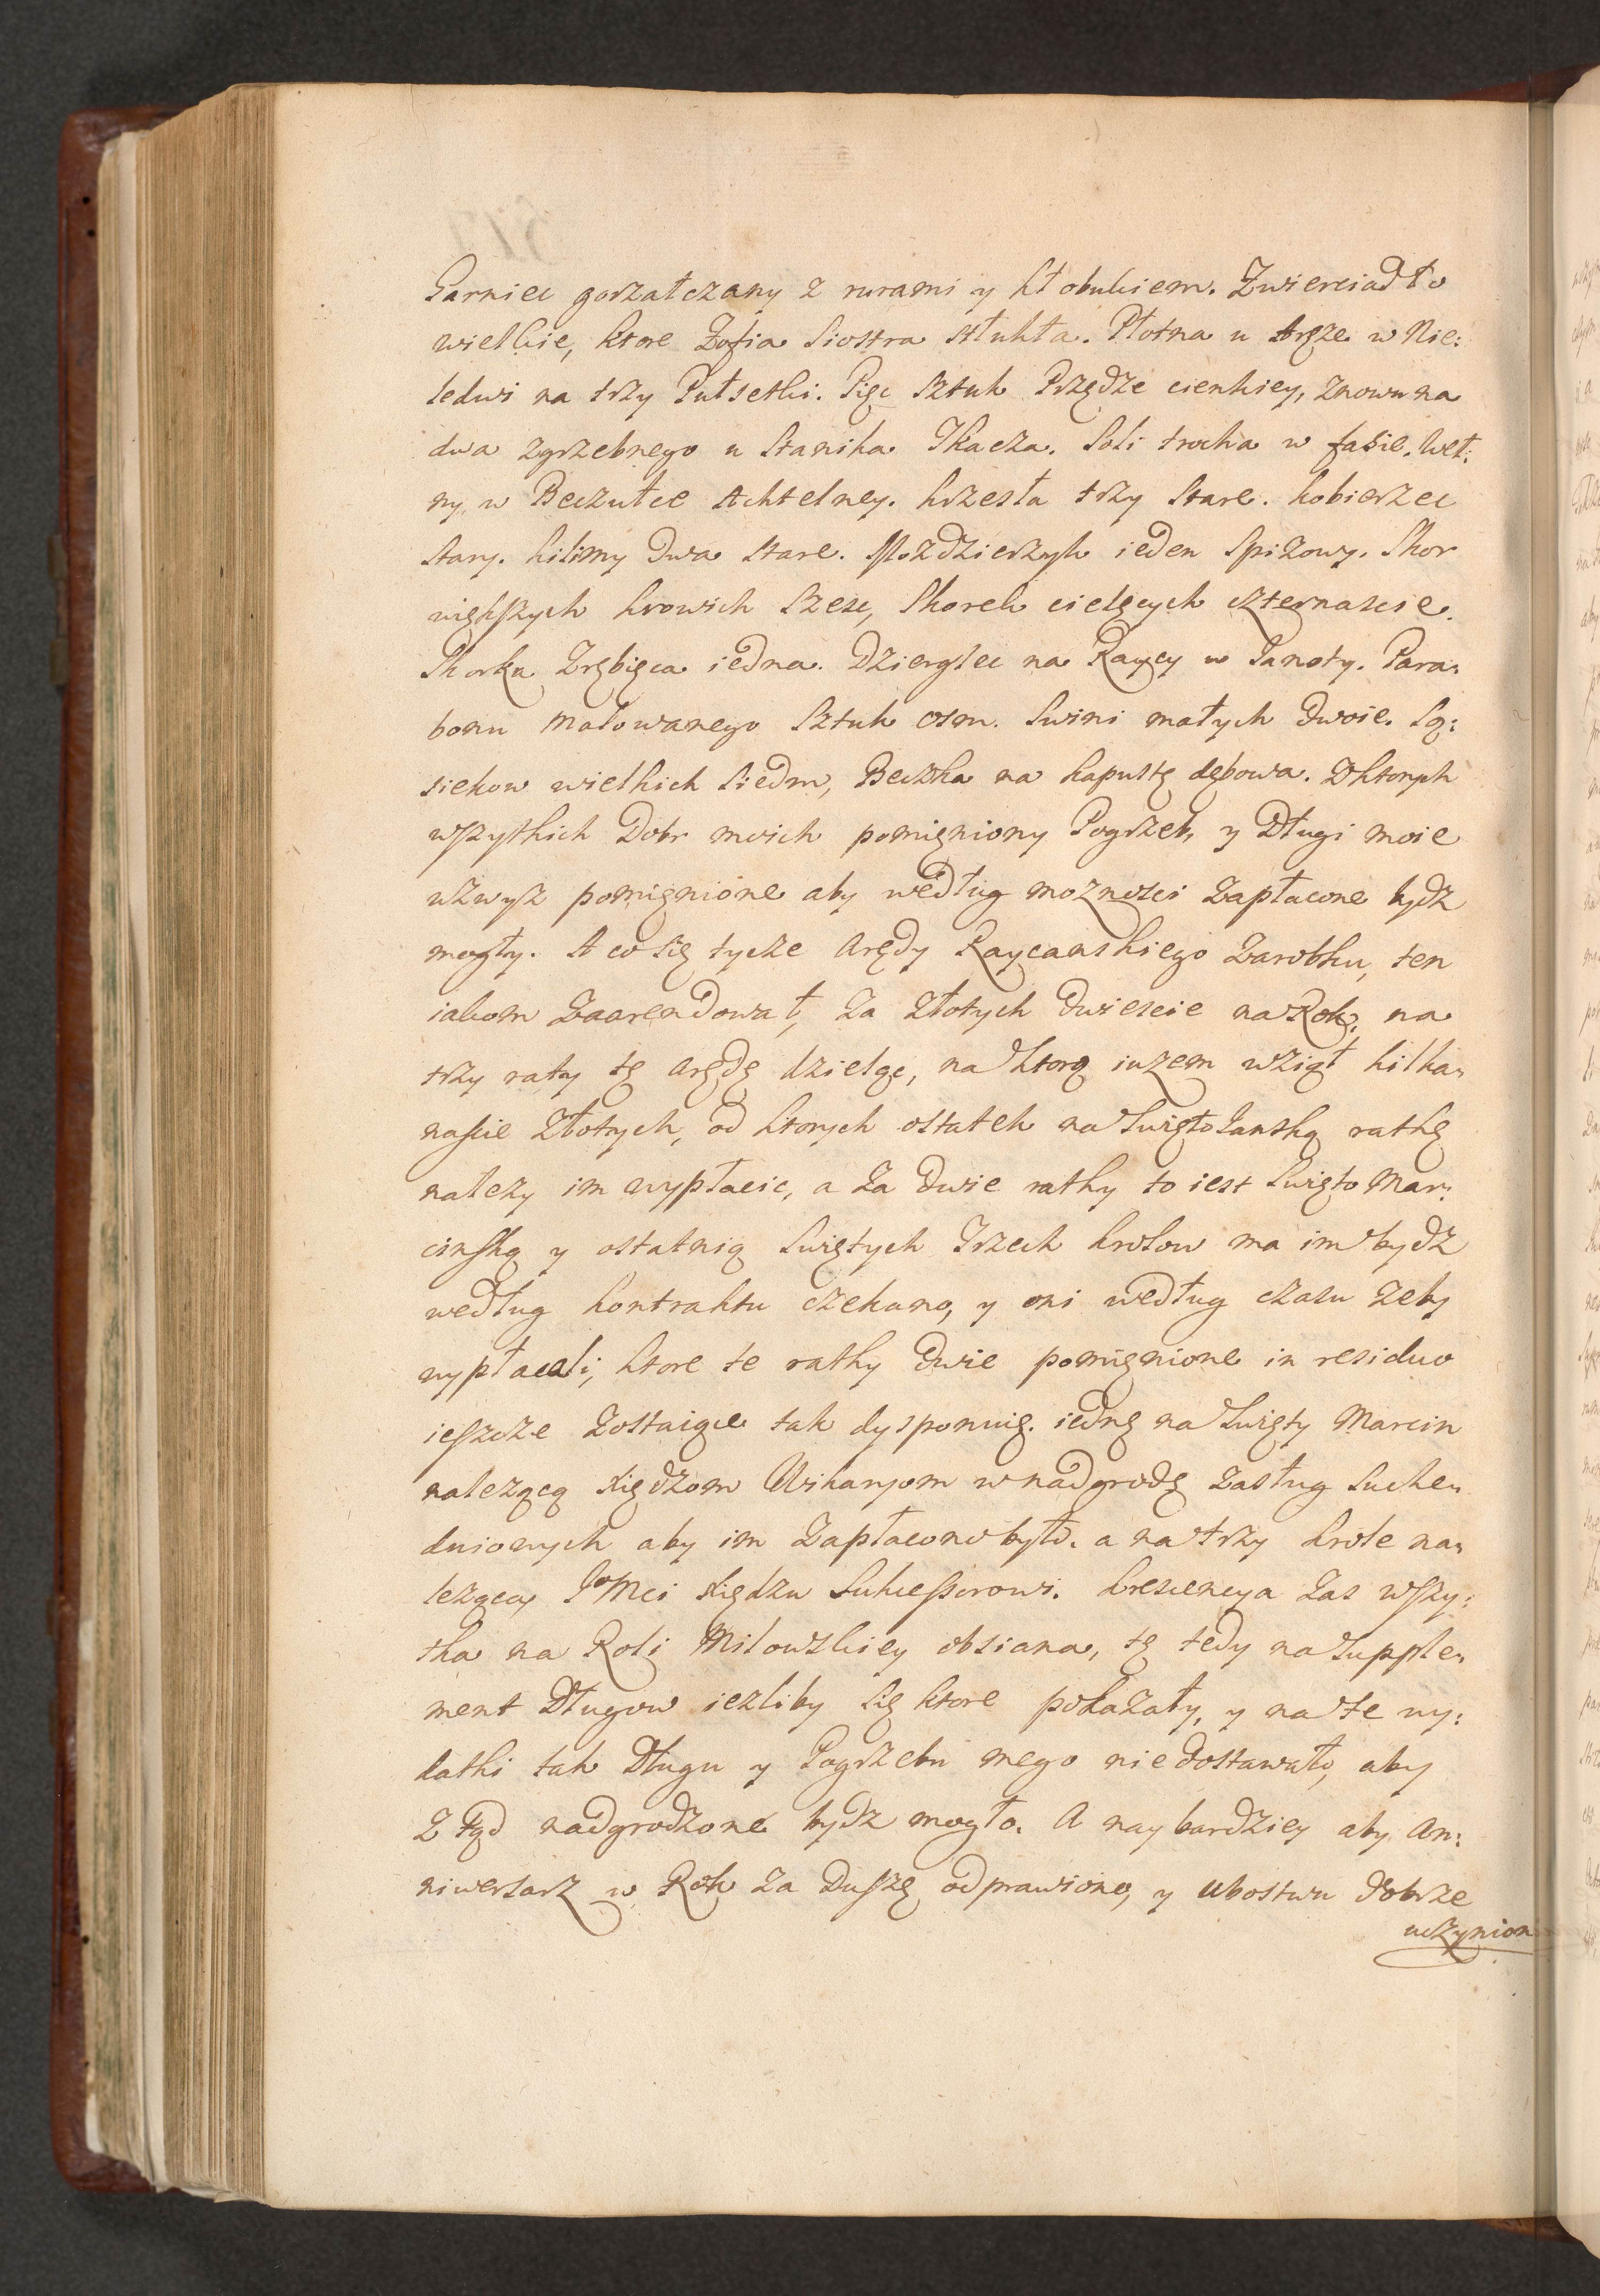 Garniec gorzałczany z rurami y kłobukiem. Zwierciadło
wielkie, ktore Zofia Siostra stłukła. Płotna u tręze w Nie:
ledwi na trzy Pułsetki. Pięc sztuk Przędze cienkiey, znowu na
dwa zgrzebnego u Stanika Tkacza. Soli trocha w fasie. Weł:
ny w Beczułce Achtelney. krzesła trzy stare. kobierzec
stary. kilimy dwa stare. Mozdzierzyk ieden Spizowy. Skor
większych krowich szesc, Skorek cielęcych czternascie.
Skorka Zrębięca iedna. Dzierglec na Raycy w Janoty. Para:
bonu malowanego sztuk osm. Swini małych dwoie. Są:
siekow wielkich Siedm, Beczka na kapustę dębowa. Z ktorych
wszystkich Dobr moich pomięniony Pogrzeb, y Długi moie
wzwyz pomięnione aby według moznosci zapłacone bydz
mogły. A co się tycze Arędy Raycanskiego Zarobku, ten
iakom Zaarendował, za złotych dwiescie na Rok, na
trzy raty tę arędę dzieląc, na ktorą iuzem wziął kilka:
nascie złotych, od ktorych ostatek na Swięto Janską rathę
nalezy im wypłacic, a za dwie rathy to iest Swięto Mar:
cinską y ostatnią Swiętych Trzech krolow ma im bydz
według kontraktu czekano, y oni według czasu zeby
wypłacali, ktore te rathy dwie pomięnione in residuo
ieszcze zostaiące tak dysponuię. iednę na Swięty Marcin
nalezącą Xiędzom Wikaryom w nadgrodę zasług Suche:
dniowych aby im zapłacono było. a na trzy krole na:
lezącą JoMci Xiędzu Sukcessorowi. krescencya zas wszy:
tka na Roli Milowskiey obsiana, tę tedy na Supple:
ment Długow iezliby się ktore pokazały, y na te wy:
datki tak Długu y Pogrzebu mego nie dostawało, aby
z tąd nadgrodzone bydz mogło. A naybardziey aby An:
niwersarz w Rok za Duszę odprawiono, y ubostwu dobrze
uczynion